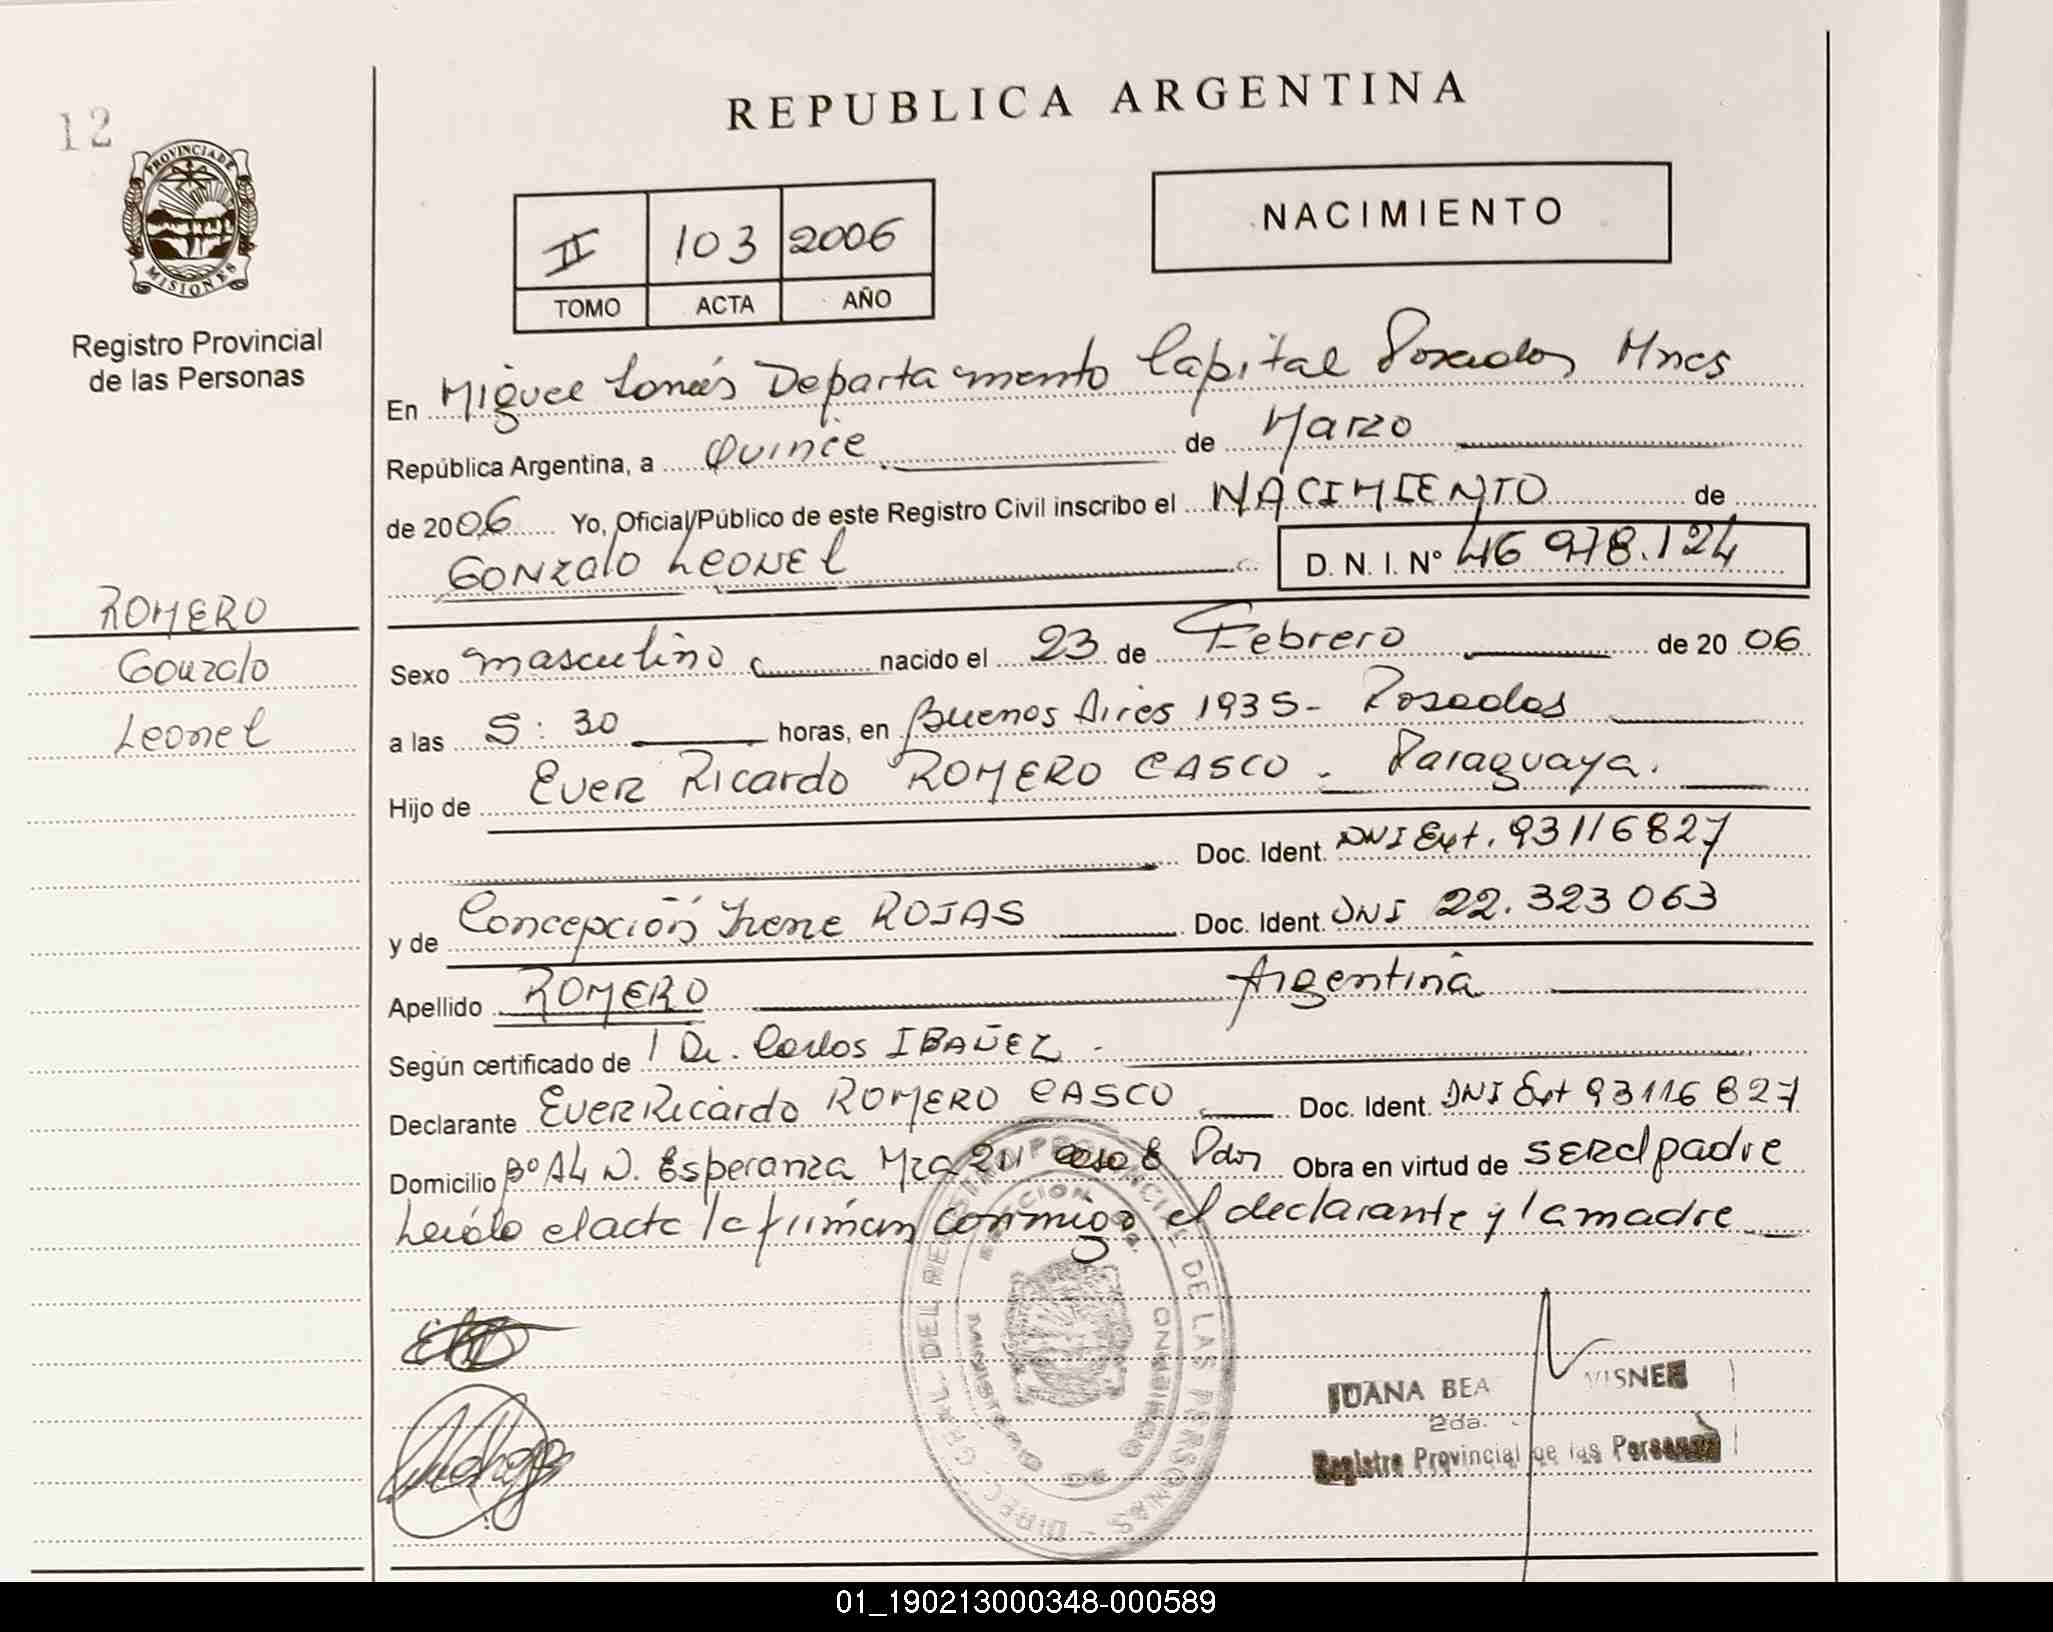 12
REPUBLICA ARGENTINA
PROVINCIA DE
MISIONES
Registro Provincial
de las Personas
II 103 2006
TOMO ACTA AÑO
NACIMIENTO
En Miguel Lanús Departamento Capital Posadas Mnes
República Argentina, a Quince de Marzo
de 2006 Yo, Oficial Público de este Registro Civil inscribo el NACIMIENTO de
GONZALO LEONEL D. N. I. N° 46 978.124
ROMERO
Gonzalo
Leonel
Sexo masculino nacido el 23 de Febrero de 20 06
a las 5:30 horas, en Buenos Aires 1935- Posadas
Hijo de Ever Ricardo ROMERO CASCO. Paraguaya.
Doc. Ident. DNI Ext. 93116827
y de Concepción Irene ROJAS Doc. Ident. DNI 22.323 063
Apellido ROMERO Argentina
Según certificado de l Dr. Carlos IBAÑEZ -
Declarante Ever Ricardo ROMERO CASCO Doc. Ident. DNI Ext 93116827
Domicilio B° A4 N. Esperanza Mza 2N casa 8 Pdas Obra en virtud de ser el padre
Leído el acta la firman conmigo el declarante y la madre
DIREC. GRAL. DEL REGISTRO PROVINCIAL DE LAS PERSONAS
JUANA BEA VISNER
2da.
Registro Provincial de las Personas
01_190213000348-000589